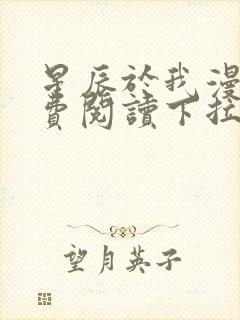 星辰於我漫
費閱讀下拉
望月英子